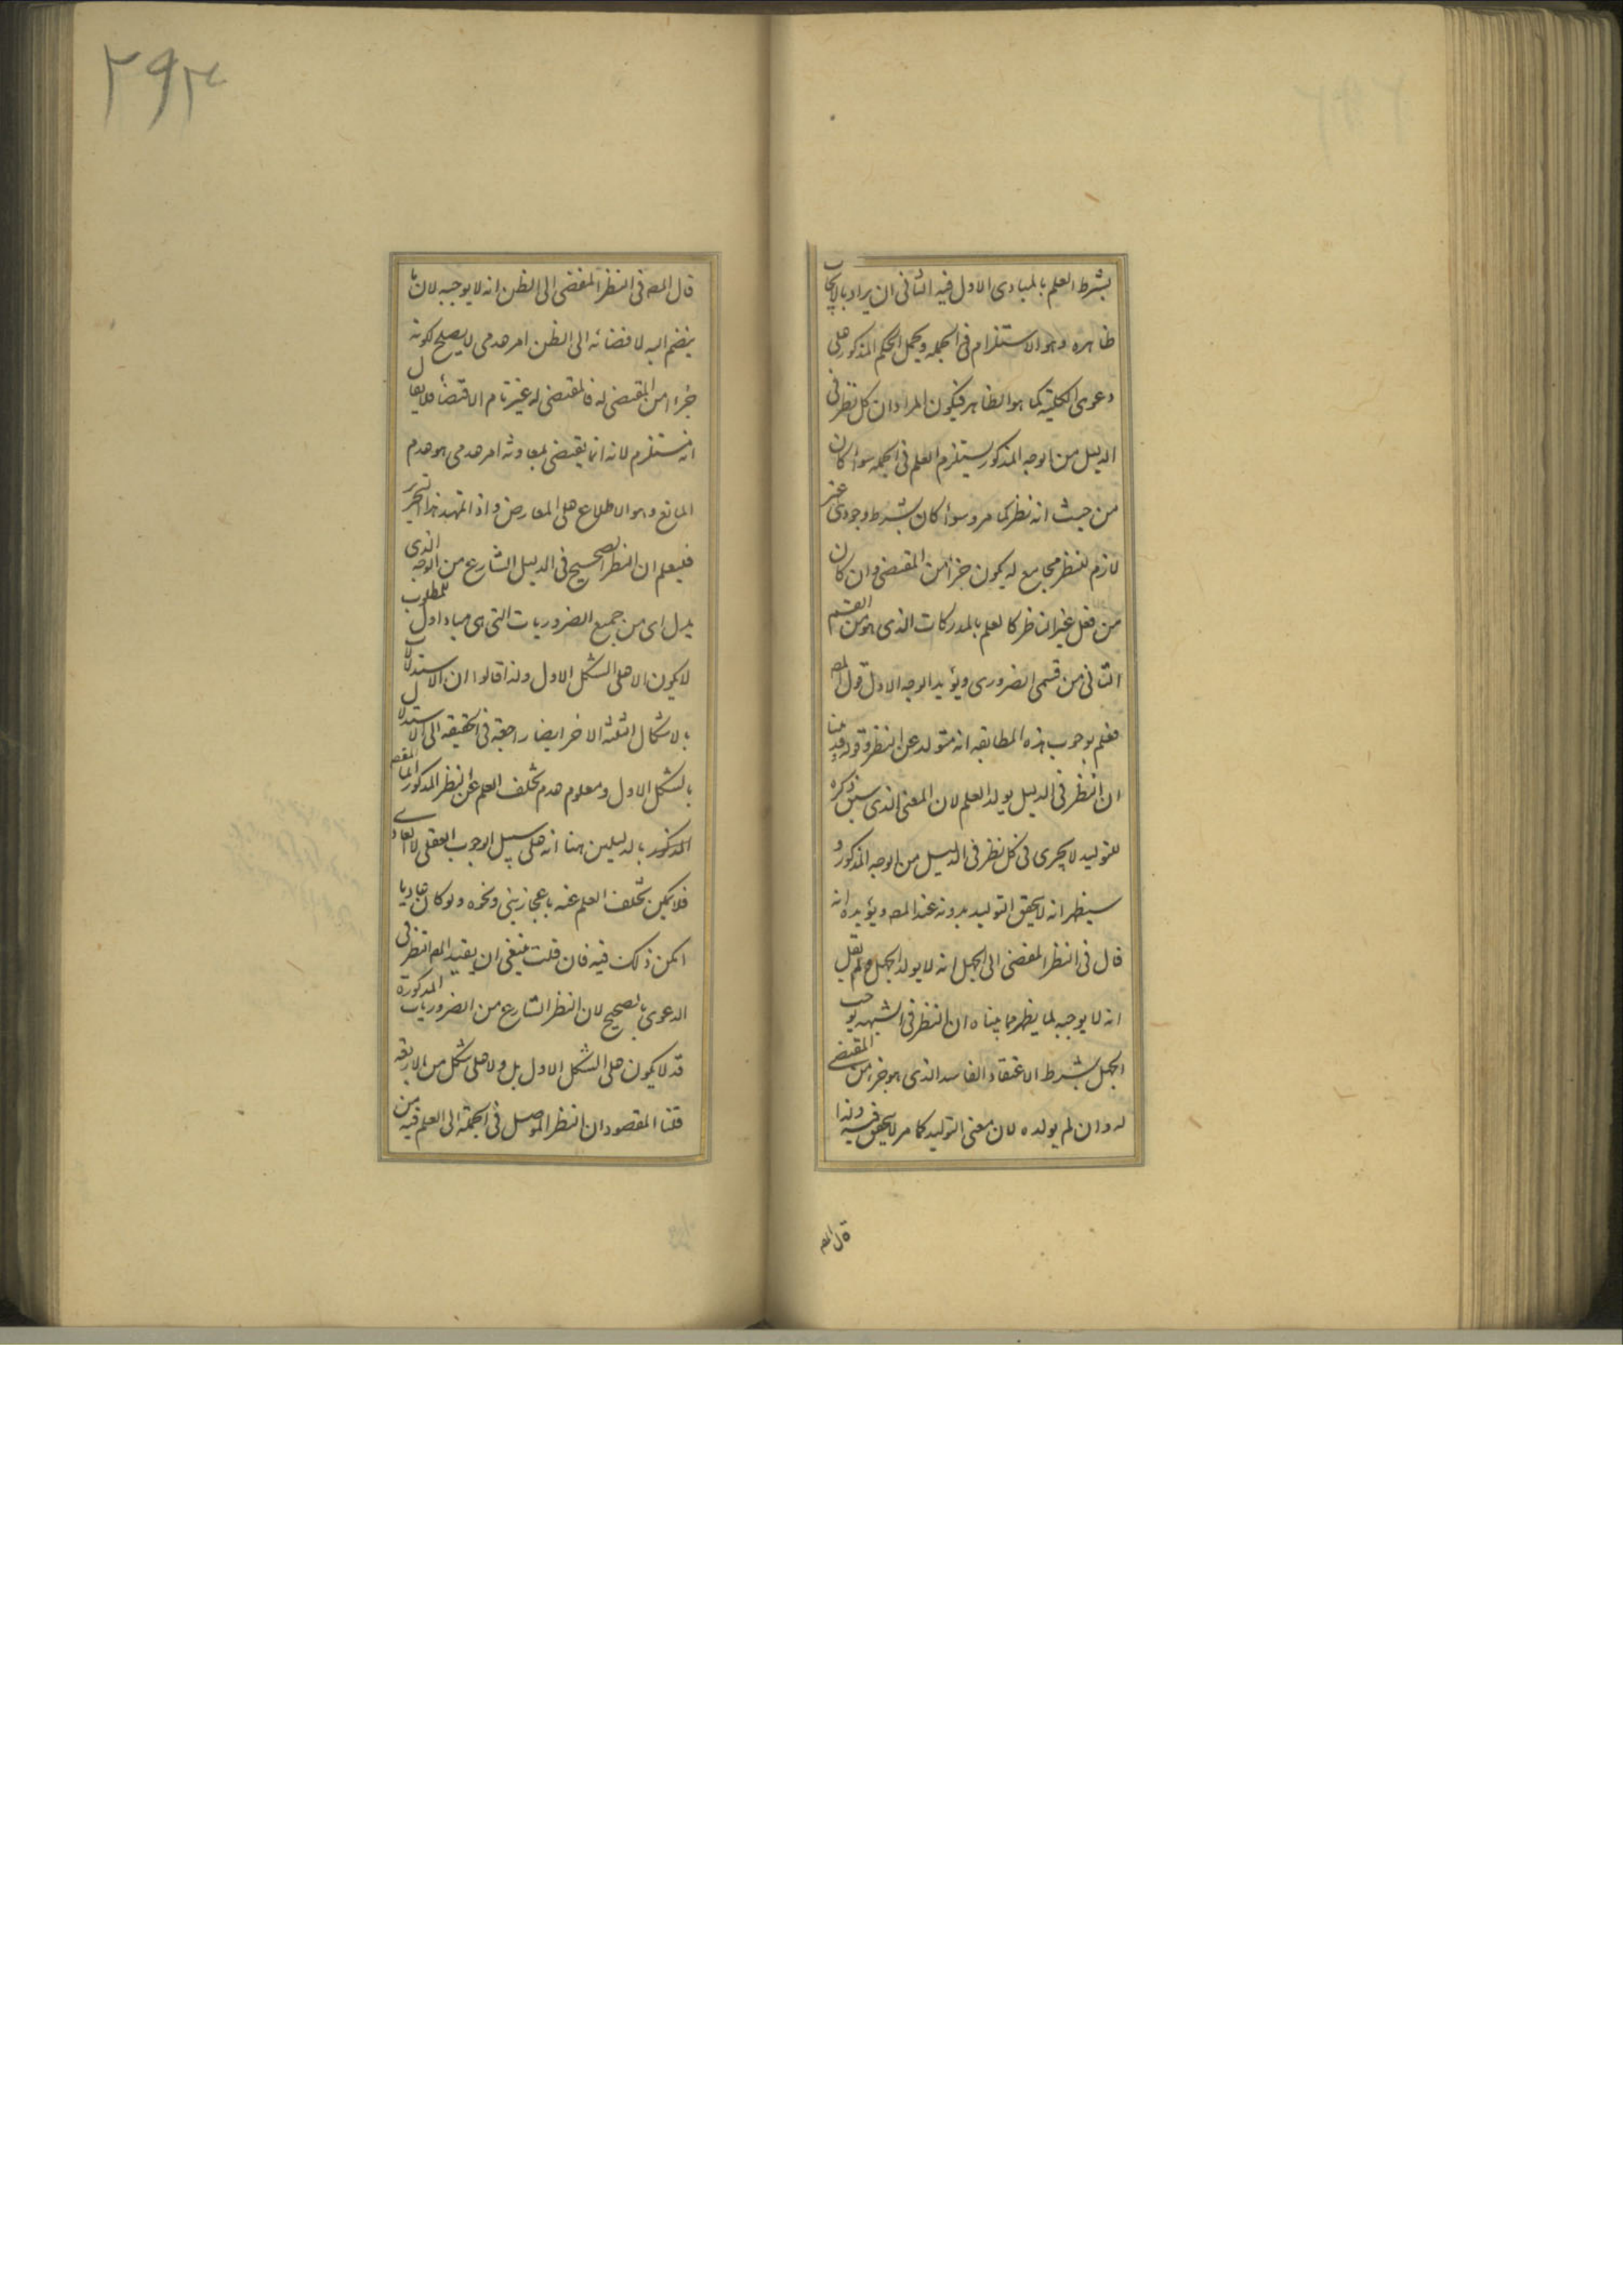 بشرط العلم بالمبادى الاول فيه الثانى ان يراد بالايجاب
ظاهره وهو الاستلزام فى الجملة ويحمل الحكم المذكور على
دعوى الكلية كما هو الظاهر فيكون المراد ان كل نظر فى
الدليل من الوجه المذكور يستلزم العلم فى الجملة سواء كان
من حيث انه نظر كما مر وسواء كان بشرط وجودى غير
لازم للنظر مجامع له يكون جزأ من المقتضى وان كان
من فعل غير الناظر كالعلم بالمدركات الذى هو من القسم
الثانى من قسمى الضرورى ويؤيد الوجه الاول قول المصـ
فعلم بوجوب هذه المطابقة انه متولد عن النظر وقوله قد بينا
ان النظر فى الدليل يولد العلم لان المعنى الذى سبق ذكره
للتوليد لا يجرى فى كل نظر فى الدليل من الوجه المذكور و
سيظهر انه لا يتحقق التوليد بدونه عند المصـ ويؤيده انه
قال فى النظر المفضى الى الجهل انه لا يولد الجهل ولم يقل
انه لا يوجبه لما يظهر مما بيناه ان النظر فى الشبهة يوجب
الجهل بشرط الاعتقاد الفاسد الذى هو جزء من المقتضى
له وان لم يولده لان معنى التوليد كما مر لا يتحقق فيه ولذا
قال المصـ
٢٩٣
قال المصـ فى النظر المفضى الى الظن انه لا يوجبه لان ما
ينضم اليه لافضائه الى الظن امر عدمى لا يصلح لكونه
جزءا من المقتضى له فالمقتضى له غير تام الاقتضاء فلا يقال
انه مستلزم لانه انما يقتضى بمعاونة امر عدمى هو عدم
المانع وهو الاطلاع على المعارض واذا تمهد هذا التحرير
فليعلم ان النظر الصحيح فى الدليل الشارع من الوجه الذى
يدل اى من جميع الضروريات التى هى مباد اول للمطلوب
لا يكون الا على الشكل الاول ولذا قالوا ان الاستدلال
بالاشكال الثلثة الاخر ايضا راجعة فى الحقيقة الى الاستدلال
بالشكل الاول ومعلوم عدم تخلف العلم عن النظر المذكور
المذكور بالدليلين هنا انه على سبيل الوجوب العقلى لا العادى
فلا يمكن تخلف العلم عنه باعجاز نبى ونحوه ولو كان عاديا
امكن ذلك فيه فان قلت ينبغى ان يقيد المصـ النظر فى
الدعوى بالصحيح لان النظر الشارع من الضروريات المذكورة
قد لا يكون على الشكل الاول بل ولا على شكل من الاربعة
قلنا المقصود ان النظر الموصل فى الجملة الى العلم فيه من